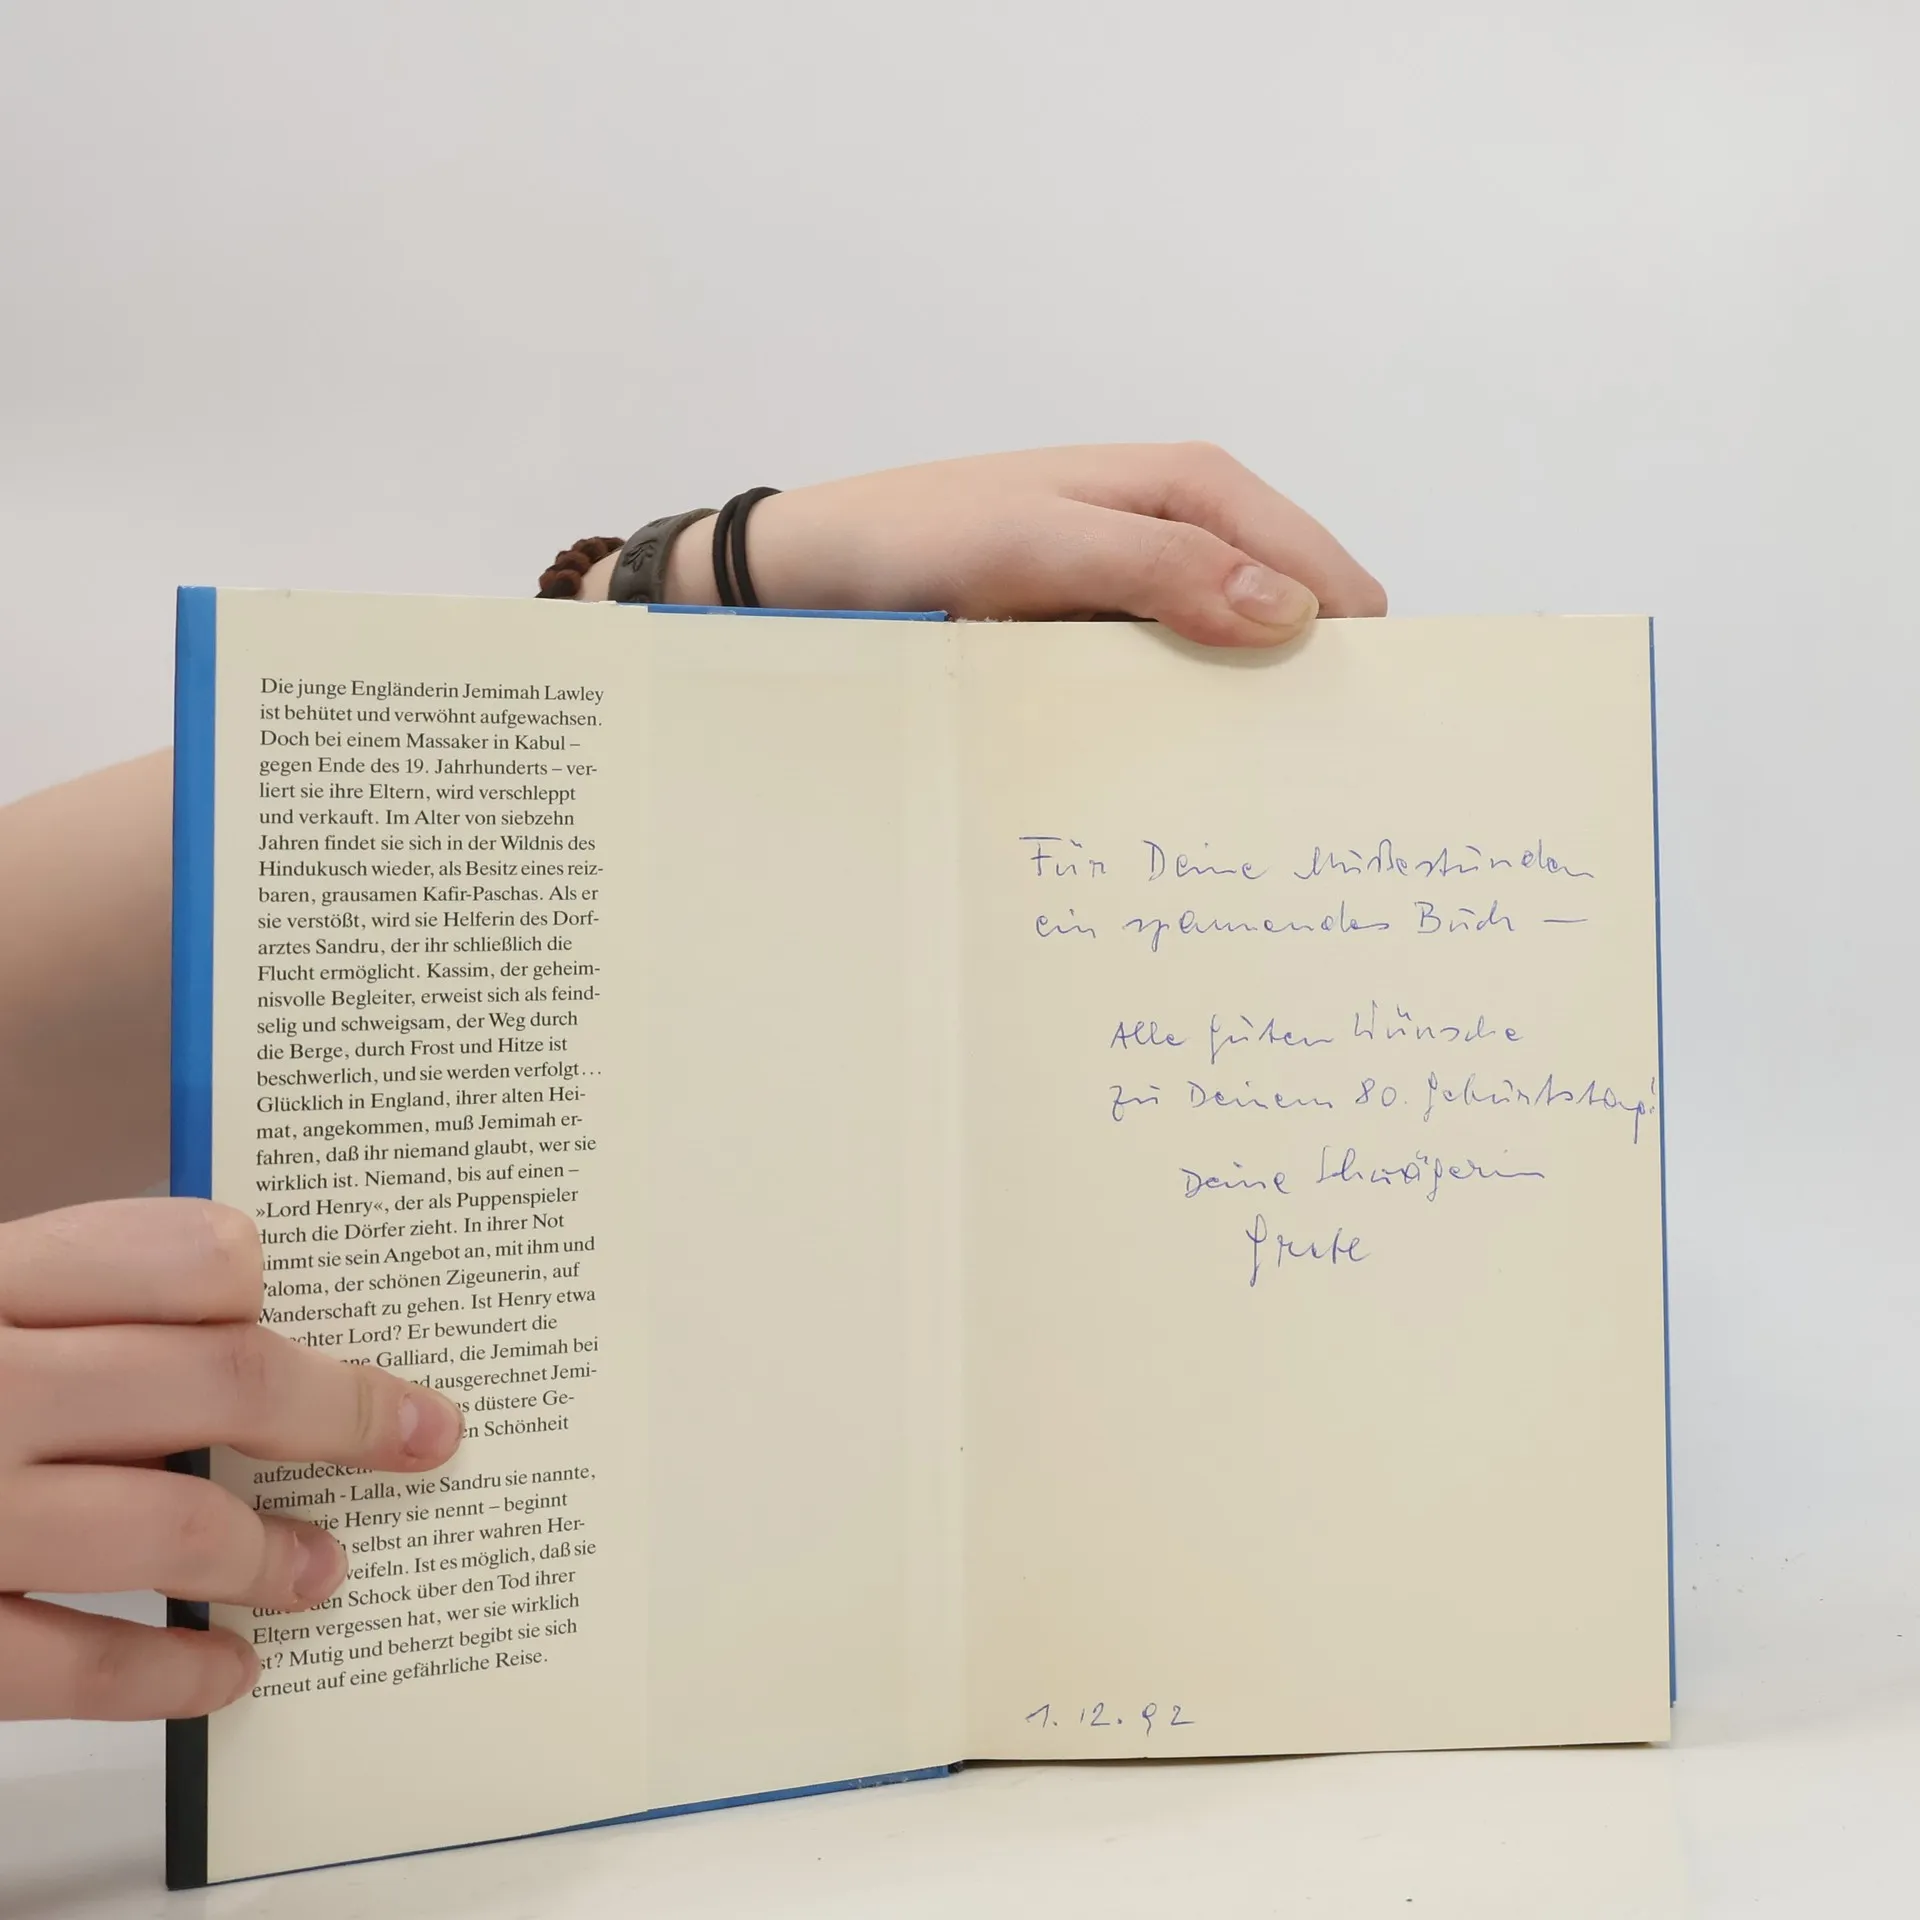 Die junge Engländerin Jemimah Lawley
ist behütet und verwöhnt aufgewachsen.
Doch bei einem Massaker in Kabul –
gegen Ende des 19. Jahrhunderts – ver-
liert sie ihre Eltern, wird verschleppt
und verkauft. Im Alter von siebzehn
Jahren findet sie sich in der Wildnis des
Hindukusch wieder, als Besitz eines reiz-
baren, grausamen Kafir-Paschas. Als er
sie verstößt, wird sie Helferin des Dorf-
arztes Sandru, der ihr schließlich die
Flucht ermöglicht. Kassim, der geheim-
nisvolle Begleiter, erweist sich als feind-
selig und schweigsam, der Weg durch
die Berge, durch Frost und Hitze ist
beschwerlich, und sie werden verfolgt...
Glücklich in England, ihrer alten Hei-
mat, angekommen, muß Jemimah er-
fahren, daß ihr niemand glaubt, wer sie
wirklich ist. Niemand, bis auf einen –
»Lord Henry«, der als Puppenspieler
durch die Dörfer zieht. In ihrer Not
nimmt sie sein Angebot an, mit ihm und
Paloma, der schönen Zigeunerin, auf
Wanderschaft zu gehen. Ist Henry etwa
Lord? Er bewundert die
Galliard, die Jemimah bei
ausgerechnet Jemi-
düstere Ge-
Schönheit
aufzudecken.
Jemimah - Lalla, wie Sandru sie nannte,
wie Henry sie nennt – beginnt
selbst an ihrer wahren Her-
Ist es möglich, daß sie
den Schock über den Tod ihrer
Eltern vergessen hat, wer sie wirklich
ist? Mutig und beherzt begibt sie sich
erneut auf eine gefährliche Reise.
Für Deine Mußestunden
ein spannendes Buch –
Alle guten Wünsche
zu Deinem 80. Geburtstag!
Deine Schwägerin
Grete
1. 12. 92